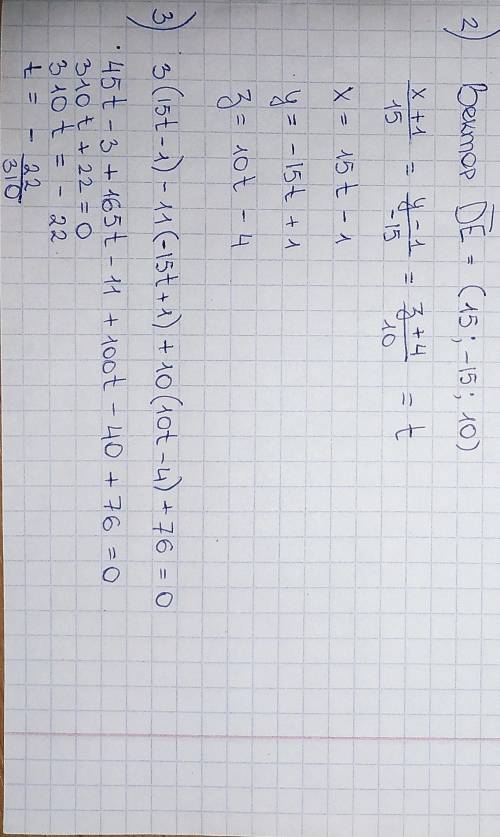 2) Вектор DE = (15; -15; 10)
x+1/15 = y-1/-15 = z+4/10 = t
x = 15t - 1
y = -15t + 1
z = 10t - 4
3) 3(15t-1) - 11(-15t+1) + 10(10t-4) + 76 = 0
45t - 3 + 165t - 11 + 100t - 40 + 76 = 0
310t + 22 = 0
310t = - 22
t = - 22/310